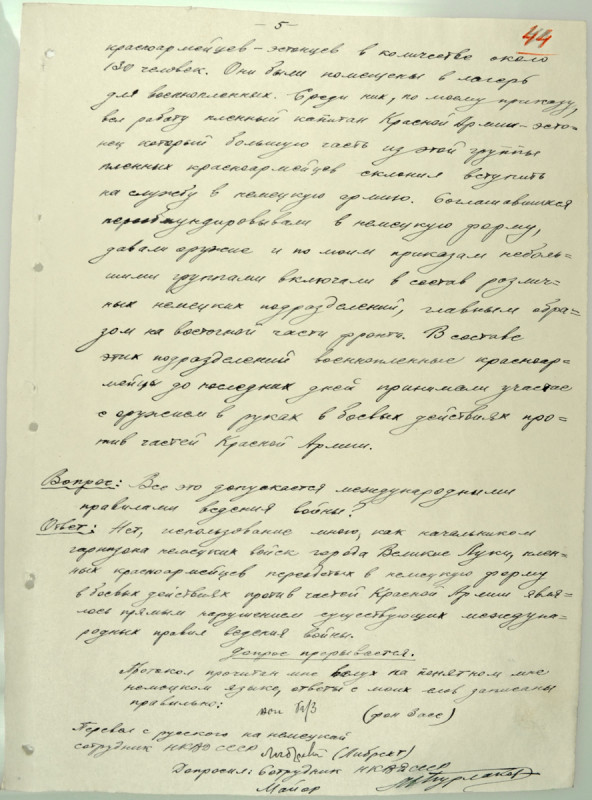 – 5 –
44
красноармейцев – эстонцев в количестве около
130 человек. Они были помещены в лагерь
для военнопленных. Среди них, по моему приказу,
вел работу пленный капитан Красной Армии – эсто-
нец который большую часть из этой группы
пленных красноармейцев склонил вступить
на службу в немецкую армию. Соглашавшихся
переобмундировывали в немецкую форму,
давали оружие и по моим приказам неболь-
шими группами включали в состав различ-
ных немецких подразделений, главным обра-
зом на восточной части фронта. В составе
этих подразделений военнопленные красноар-
мейцы до последних дней принимали участие
с оружием в руках в боевых действиях про-
тив частей Красной Армии.
Вопрос: Все это допускается международными
правилами ведения войны?
Ответ: Нет, использование мною, как начальником
гарнизона немецких войск города Великие Луки, плен-
ных красноармейцев переодетых в немецкую форму
в боевых действиях против частей Красной Армии явля-
лось прямым нарушением существующих междуна-
родных правил ведения войны.
Допрос прерывается.
Протокол прочитан мне вслух на понятном мне
немецком языке, ответы с моих слов записаны
правильно:
(фон Засс)
Перевел с русского на немецкой
сотрудник НКВД СССР (Либрехт)
Допросил: Сотрудник НКВД СССР
Майор